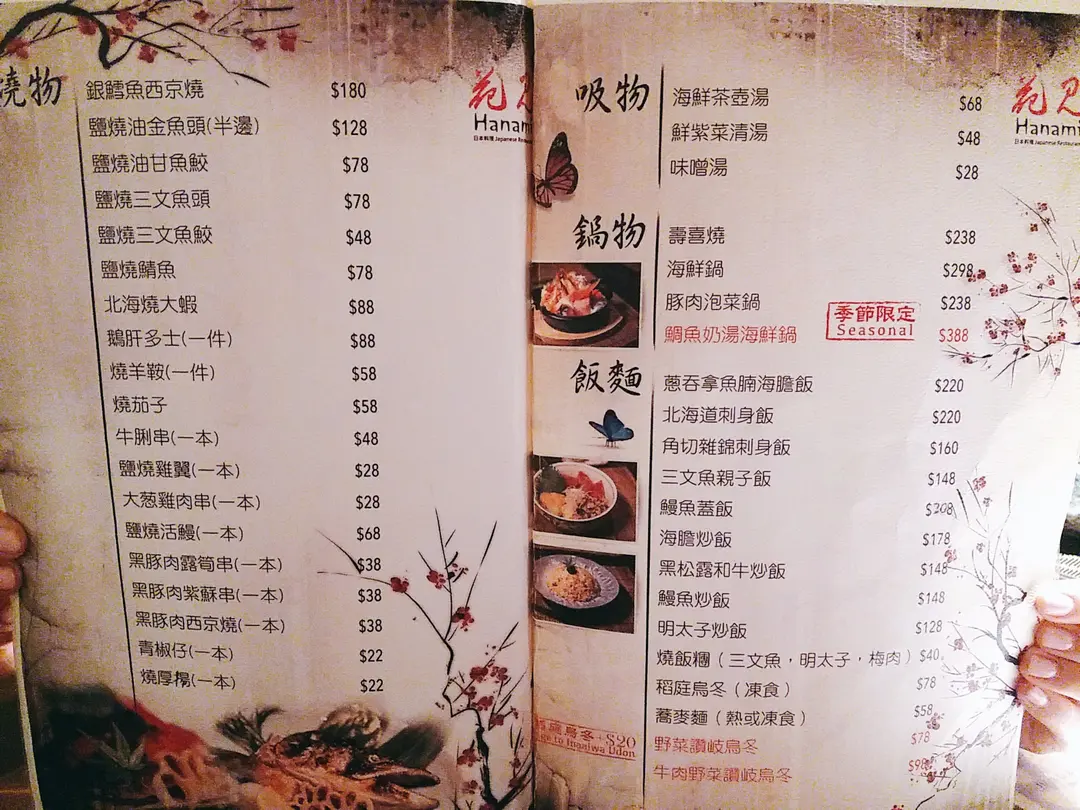 燒物
銀鱈魚西京燒 $180
鹽燒油金魚頭(半邊) $128
鹽燒油甘魚鮫 $78
鹽燒三文魚頭 $78
鹽燒三文魚鮫 $48
鹽燒鯖魚 $78
北海燒大蝦 $88
鵝肝多士(一件) $88
燒羊鞍(一件) $58
燒茄子 $58
牛脷串(一本) $48
鹽燒雞翼(一本) $28
大葱雞肉串(一本) $28
鹽燒活鰻(一本) $68
黑豚肉露筍串(一本) $38
黑豚肉紫蘇串(一本) $38
黑豚肉西京燒(一本) $38
青椒仔(一本) $22
燒厚揚(一本) $22
花見
Hanami
日本料理 Japanese Restaurant
吸物
海鮮茶壺湯 $68
鮮紫菜清湯 $48
味噌湯 $28
鍋物
壽喜燒 $238
海鮮鍋 $298
豚肉泡菜鍋 $238
鯛魚奶湯海鮮鍋 $388
季節限定
Seasonal
飯麵
蔥吞拿魚腩海膽飯 $220
北海道刺身飯 $220
角切雜錦刺身飯 $160
三文魚親子飯 $148
鰻魚蓋飯 $208
海膽炒飯 $178
黑松露和牛炒飯 $148
鰻魚炒飯 $148
明太子炒飯 $128
燒飯糰（三文魚，明太子，梅肉） $40
稻庭烏冬（凍食） $78
蕎麥麵（熱或凍食） $58
野菜讚岐烏冬 $78
牛肉野菜讚岐烏冬 $98
烏冬+$20
to Inaniwa Udon
花見
Hanami
日本料理 Japanese Restaurant